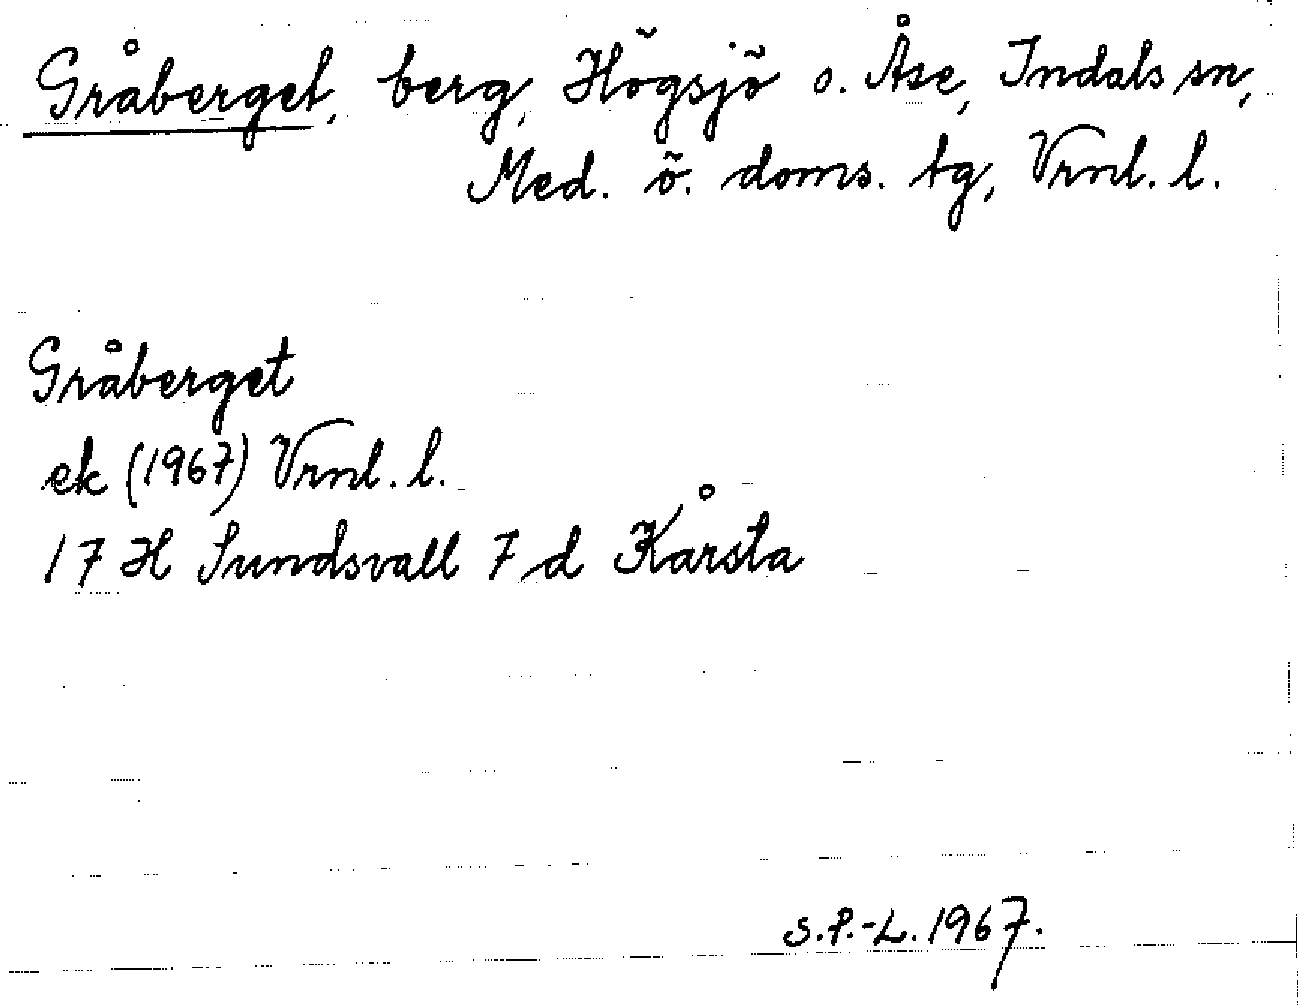 Gråberget, berg, Högsjö o. Åse, Indals sn,
Med. ö. doms. tg, Vrnl. l.
Gråberget
ek (1967) Vrnl. l.
17 H Sundsvall 7 d Kårsta
S.P.-L. 1967.